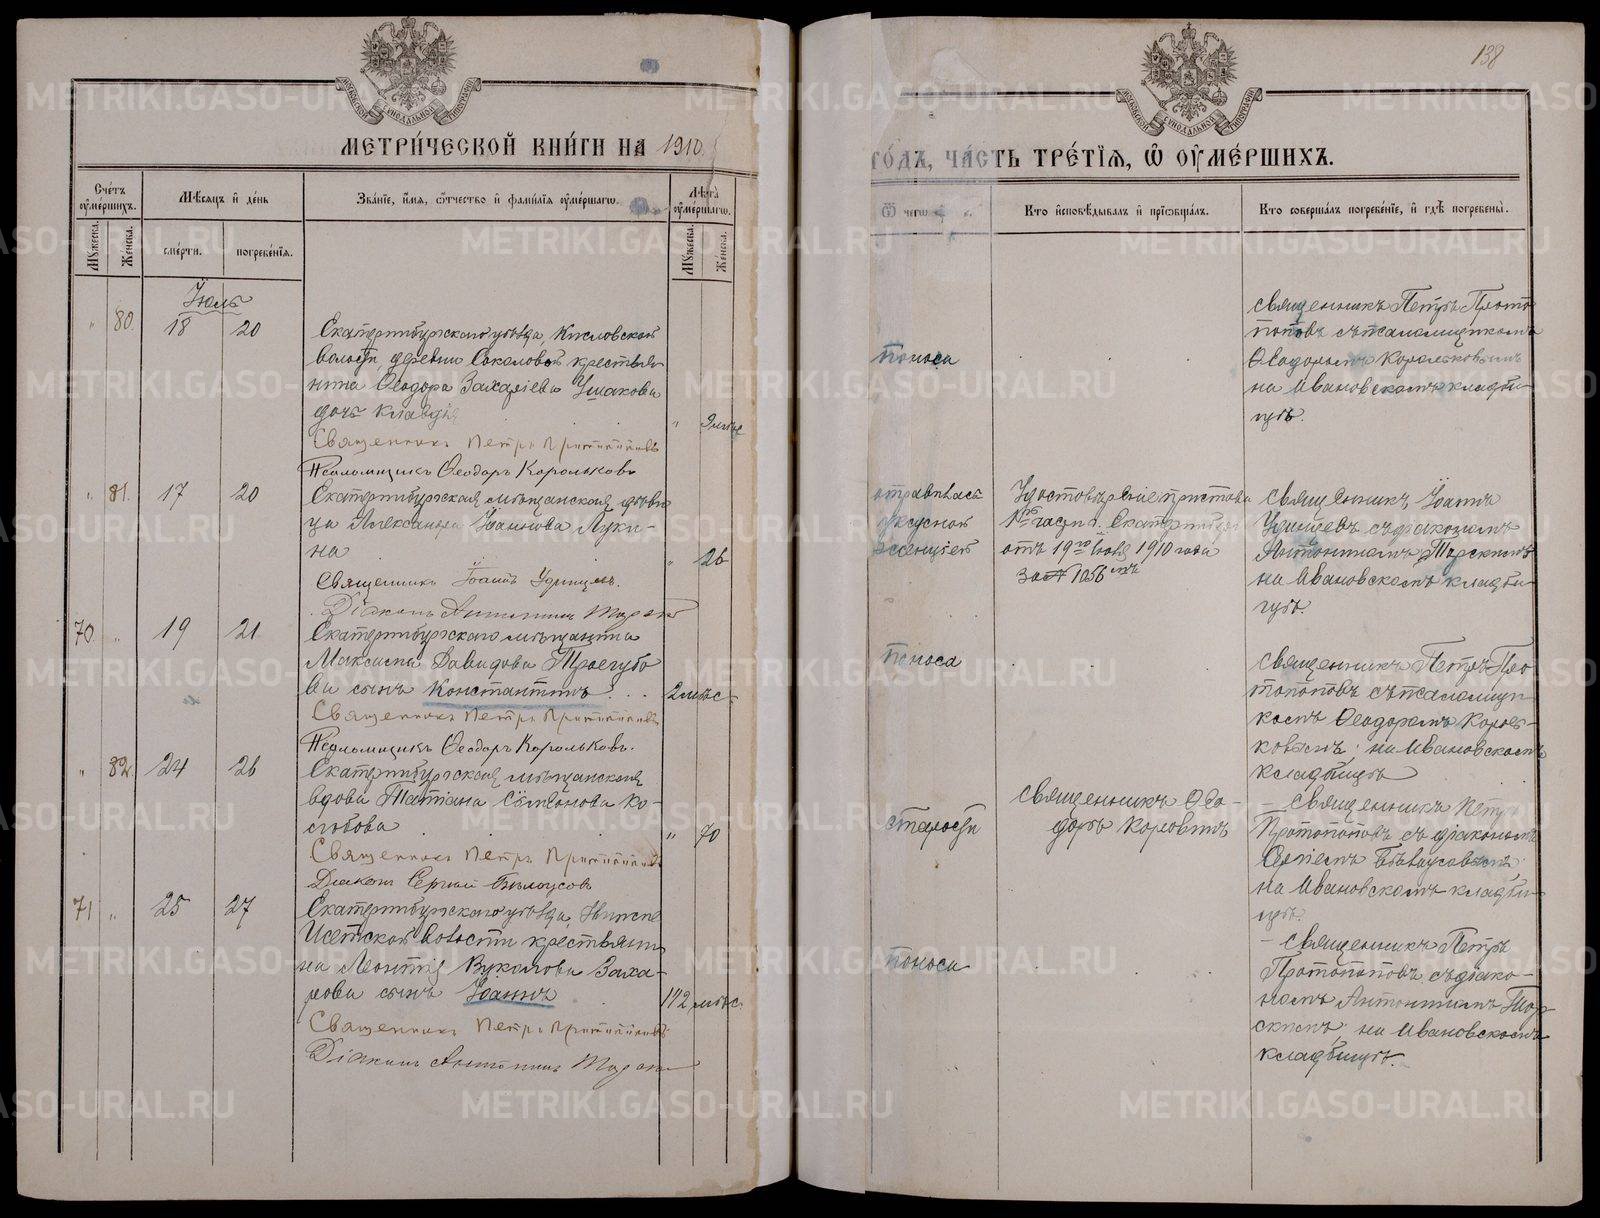 138
МЕТРИ́ЧЕСКОЙ КНИ́ГИ НА 1910
ГО́ДЪ, ЧА́СТЬ ТРЕ́ТІѦ, Ѿ ОУ҆МЕ́РШИХЪ.
Сче́тъ оу҆ме́ршихъ.
Мѣ́сѧцъ и҆ де́нь
Зва́нїе, и҆́мѧ, ѻ҆́тчество и҆ фами́лїѧ оу҆ме́ршагѡ.
Лѣ́та оу҆ме́ршагѡ.
Ѿ чегѡ̀
Кто̀ и҆сповѣ́дывалъ и҆ прїѡбща́лъ.
Кто̀ соверша́лъ погребе́нїе, и҆ гдѣ̀ погребены̀.
Мꙋ́жеска.
Же́нска.
сме́рти.
погребе́нїѧ.
Мꙋ́жеска.
Же́нска.
Іюль
" 80. 18 20
Екатеринбургскаго уѣзда, Кисловской
волости деревни Соколовой крестья-
нина Ѳеодора Захаріева Ушакова
дочь Клавдія
" 9 мѣс
Священникъ Петръ Протопоповъ
Псаломщикъ Ѳеодоръ Корольковъ
поноса
священникъ Петръ Прото
поповъ съ псаломщикомъ
Ѳеодоромъ Корольковымъ
на Ивановскомъ кладби-
щѣ.
" 81. 17 20
Екатеринбургская мѣщанская дѣви
ца Александра Іоаннова Луки-
на
" 26
Священникъ Іоаннъ Удинцевъ.
Діаконъ Антонинъ
отравилась
уксусной
эссенціей
Удостовѣреніе пристава
1й части г. Екатеринбурга
отъ 19го Іюля 1910 года
за № 1056
священникъ Іоаннъ
Удинцевъ съ діакономъ
Антониномъ
на Ивановскомъ кладби-
щѣ.
70. " 19 21
Екатеринбургскаго мѣщанина
Максима Давидова Трегубо
ва сынъ Константинъ
2 мѣс
Священникъ Петръ Протопоповъ
Псаломщикъ Ѳеодоръ Корольковъ.
поноса
священникъ Петръ Про
топоповъ съ псаломщи
комъ Ѳеодоромъ Король-
ковымъ на Ивановскомъ
кладбищѣ
" 82. 24 26
Екатеринбургская мѣщанская
вдова Татіана Сѵмеонова Ко-
" 70
Священникъ Петръ Протопоповъ
Діаконъ Сергій Бѣлоусовъ
старости
священникъ Ѳео-
доръ Коровинъ
священникъ Петръ
Протопоповъ съ діакономъ
Сергіемъ Бѣлоусовымъ
на Ивановскомъ кладби-
щѣ.
71 " 25 27
Екатеринбургскаго уѣзда, Нижне
Исетской волости крестьяни-
на Леонтія Вуколова Заха-
рова сынъ Іоаннъ
1 1/2 мѣс.
Священникъ Петръ Протопоповъ
Діаконъ Антонинъ
поноса
священникъ Петръ
Протопоповъ съ діако-
номъ Антониномъ
на Ивановскомъ
кладбищѣ.
METRIKI.GASO-URAL.RU